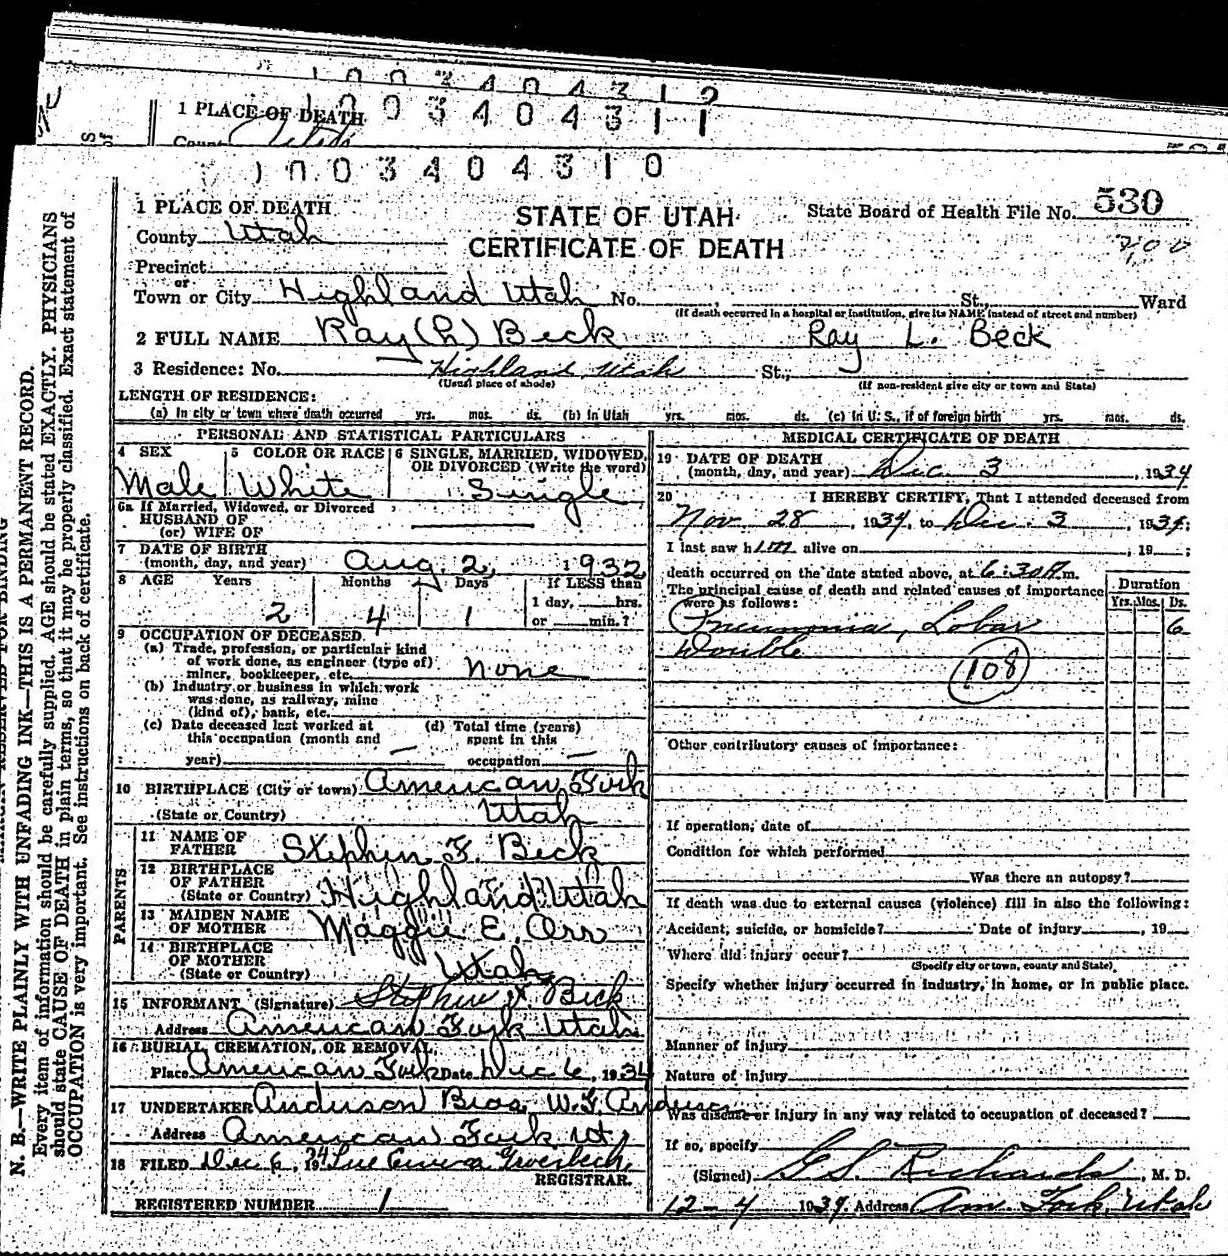 1 PLACE OF DEATH
1003404311
1003404310
1 PLACE OF DEATH
County Utah
STATE OF UTAH
CERTIFICATE OF DEATH
State Board of Health File No. 530
Precinct
or
Town or City Highland Utah No. St., Ward
(If death occurred in a hospital or institution, give its NAME instead of street and number)
2 FULL NAME Ray (L) Beck Ray L. Beck
3 Residence: No. Highland, Utah St.,
(Usual place of abode) (If non-resident give city or town and State)
LENGTH OF RESIDENCE:
(a) In city or town where death occurred yrs. mos. ds. (b) in Utah yrs. mos. ds. (c) in U. S., if of foreign birth yrs. mos. ds.
PERSONAL AND STATISTICAL PARTICULARS
4 SEX 5 COLOR OR RACE 6 SINGLE, MARRIED, WIDOWED, OR DIVORCED (Write the word)
Male White Single
6a If Married, Widowed, or Divorced
HUSBAND OF
(or) WIFE OF
7 DATE OF BIRTH
(month, day, and year) Aug. 2, 1932
8 AGE Years Months Days If LESS than
1 day, hrs.
2 4 1 or min.?
9 OCCUPATION OF DECEASED
(a) Trade, profession, or particular kind
of work done, as engineer (type of)
miner, bookkeeper, etc. none
(b) Industry or business in which work
was done, as railway, mine
(kind of), bank, etc.
(c) Date deceased last worked at (d) Total time (years)
this occupation (month and spent in this
year) occupation
10 BIRTHPLACE (City or town) American Fork
(State or Country) Utah
PARENTS
11 NAME OF
FATHER Stephen F. Beck
12 BIRTHPLACE
OF FATHER
(State or Country) Highland Utah
13 MAIDEN NAME
OF MOTHER Maggie E. Orr
14 BIRTHPLACE
OF MOTHER
(State or Country) Utah
15 INFORMANT (Signature) Stephen F Beck
Address American Fork Utah
16 BURIAL, CREMATION, OR REMOVAL
Place American Fork Date Dec 6, 1934
17 UNDERTAKER Anderson Bros. W.F. Anderson
Address American Fork Ut.
18 FILED Dec 6, 1934
REGISTRAR.
REGISTERED NUMBER 1
MEDICAL CERTIFICATE OF DEATH
19 DATE OF DEATH
(month, day, and year) Dec 3 1934
20 I HEREBY CERTIFY, That I attended deceased from
Nov. 28, 1934, to Dec. 3, 1934;
I last saw him alive on , 19 ;
death occurred on the date stated above, at 6:30 m.
The principal cause of death and related causes of importance
were as follows:
Duration
Yrs. Mos. Ds.
Pneumonia, Lobar 6
Double
108
Other contributory causes of importance:
If operation, date of
Condition for which performed
Was there an autopsy?
If death was due to external causes (violence) fill in also the following:
Accident, suicide, or homicide? Date of injury , 19
Where did injury occur?
(Specify city or town, county and State)
Specify whether injury occurred in industry, in home, or in public place.
Manner of injury
Nature of injury
Was disease or injury in any way related to occupation of deceased?
If so, specify
(Signed) G.S. Richards, M. D.
12-4 1934. Address Am. Fork, Utah
N. B.—WRITE PLAINLY WITH UNFADING INK—THIS IS A PERMANENT RECORD.
Every item of information should be carefully supplied. AGE should be stated EXACTLY. PHYSICIANS
should state CAUSE OF DEATH in plain terms, so that it may be properly classified. Exact statement of
OCCUPATION is very important. See instructions on back of certificate.